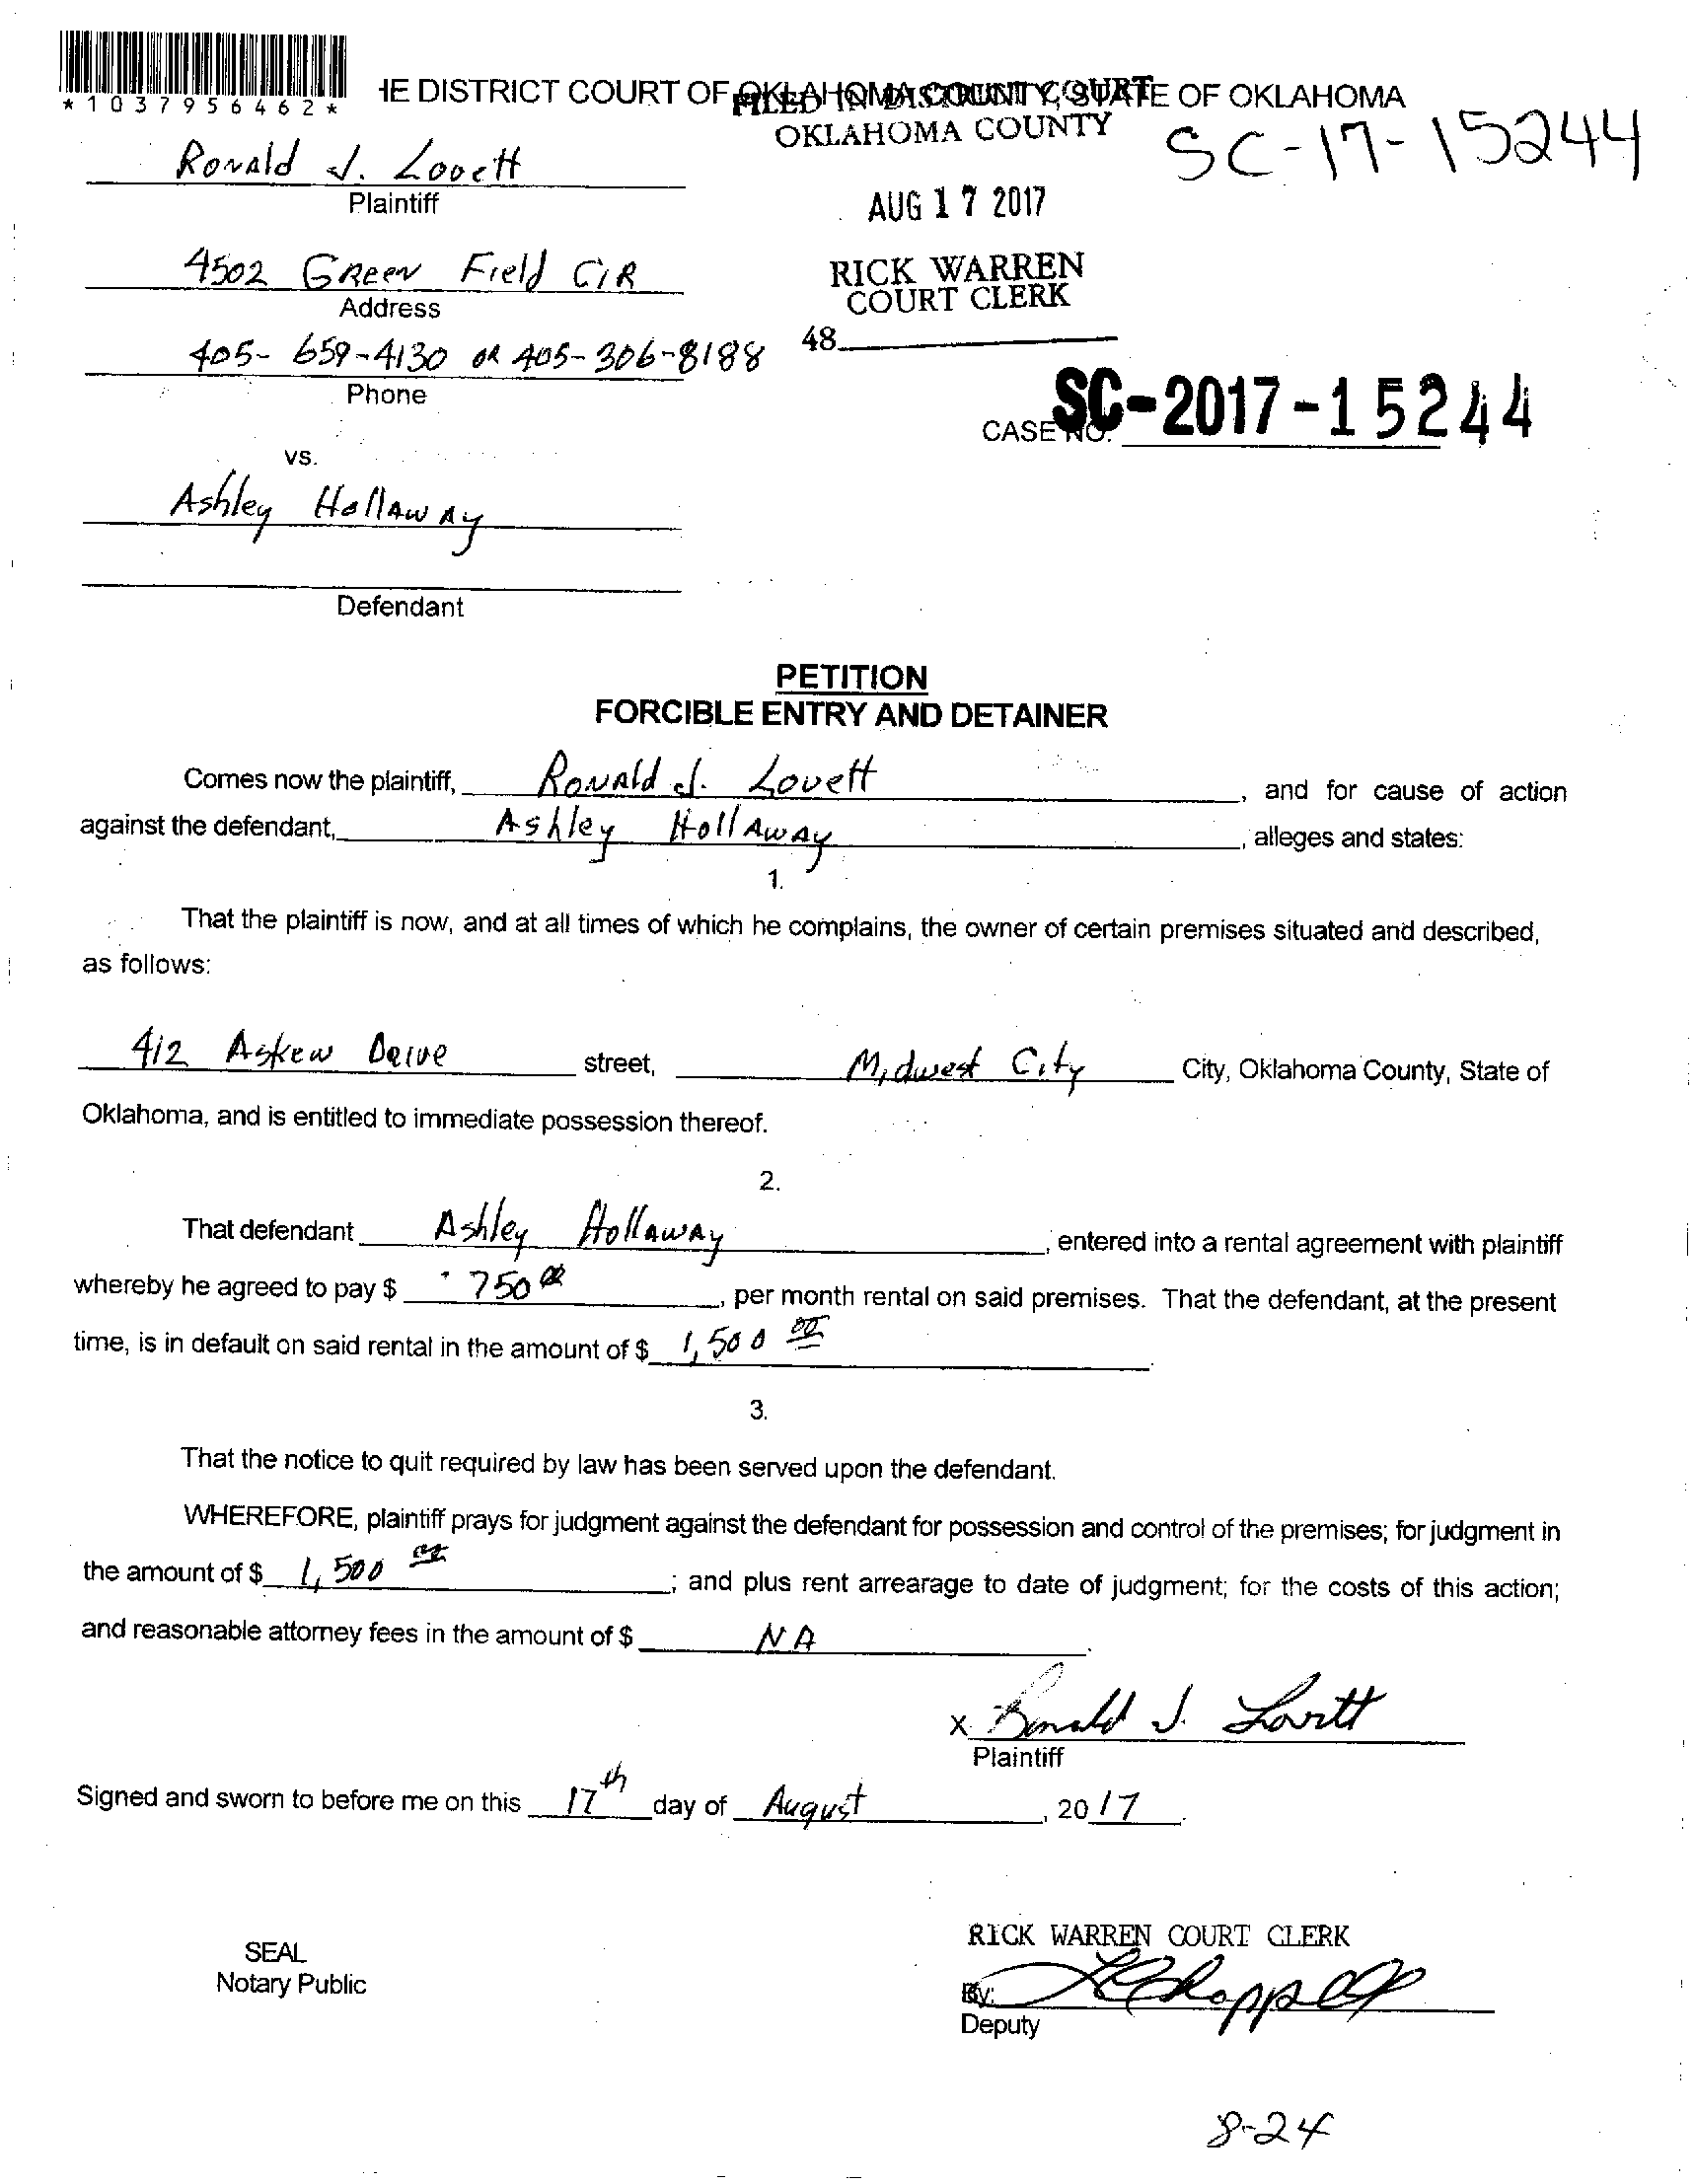 *1037956462*
HE DISTRICT COURT OF OKLAHOMA COUNTY, STATE OF OKLAHOMA
FILED IN DISTRICT COURT
OKLAHOMA COUNTY
SC-17-15244
Ronald J. Lovett
Plaintiff
AUG 17 2017
4502 Green Field Cir
Address
RICK WARREN
COURT CLERK
405-659-4130 or 405-306-8188
Phone
48
CASE NO. SC-2017-15244
vs.
Ashley Hollaway
Defendant
PETITION
FORCIBLE ENTRY AND DETAINER
Comes now the plaintiff, Ronald J. Lovett, and for cause of action
against the defendant, Ashley Hollaway, alleges and states:
1.
That the plaintiff is now, and at all times of which he complains, the owner of certain premises situated and described,
as follows:
412 Askew Drive street, Midwest City City, Oklahoma County, State of
Oklahoma, and is entitled to immediate possession thereof.
2.
That defendant Ashley Hollaway, entered into a rental agreement with plaintiff
whereby he agreed to pay $ 750 00, per month rental on said premises. That the defendant, at the present
time, is in default on said rental in the amount of $ 1,500 00.
3.
That the notice to quit required by law has been served upon the defendant.
WHEREFORE, plaintiff prays for judgment against the defendant for possession and control of the premises; for judgment in
the amount of $ 1,500 00; and plus rent arrearage to date of judgment; for the costs of this action;
and reasonable attorney fees in the amount of $ NA.
x Ronald J. Lovett
Plaintiff
Signed and sworn to before me on this 17th day of August, 2017.
RICK WARREN COURT CLERK
SEAL
Notary Public
By:
Deputy
8-24